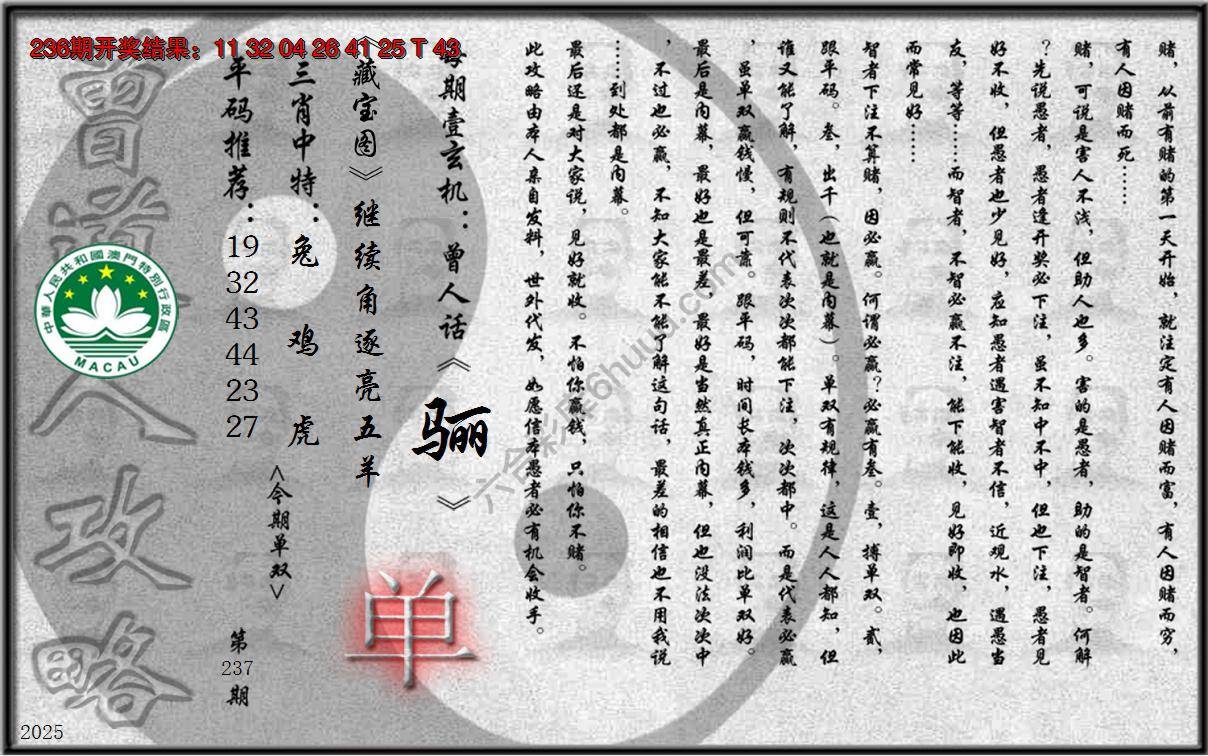 236期开奖结果：11 32 04 26 41 25 T 43
赌，从前有赌的第一天开始，就注定有人因赌而富，有人因赌而穷，
有人因赌而死……
赌，可说是害人不浅，但助人也多。害的是愚者，助的是智者。何解
？先说愚者，愚者逢开奖必下注，虽不知中不中，但也下注，愚者见
好不收，但愚者也少见好，应知愚者遇害智者不信，近观水，遇愚当
友，等等……而智者，不智必赢不注，能下能收，见好即收，也因此
而常见好……
智者下注不算赌，因必赢。何谓必赢？必赢有叁。壹，搏单双。贰，
跟平码。叁，出千（也就是内幕）。单双有规律，这是人人都知，但
谁又能了解，有规则不代表次次都能下注，次次都中。而是代表必赢
，虽单双赢钱慢，但可靠。跟平码，时间长本钱多，利润比单双好。
最后是内幕，最好也是最差，最好是当然真正内幕，但也没法次次中
，不过也必赢，不知大家能不能了解这句话，最差的相信也不用我说
……到处都是内幕。
最后还是对大家说，见好就收。不怕你赢钱，只怕你不赌。
此攻略由本人亲自发料，世外代发，如愿信本愚者必有机会收手。
每期壹玄机：曾人话《骊》
《藏宝图》继续角逐亮五羊
三肖中特：兔 鸡 虎
平码推荐：19 32 43 44 23 27
<今期单双>
单
第237期
曾道人攻略
中華人民共和國澳門特別行政區
MACAU
六合彩库6huuu.com
2025